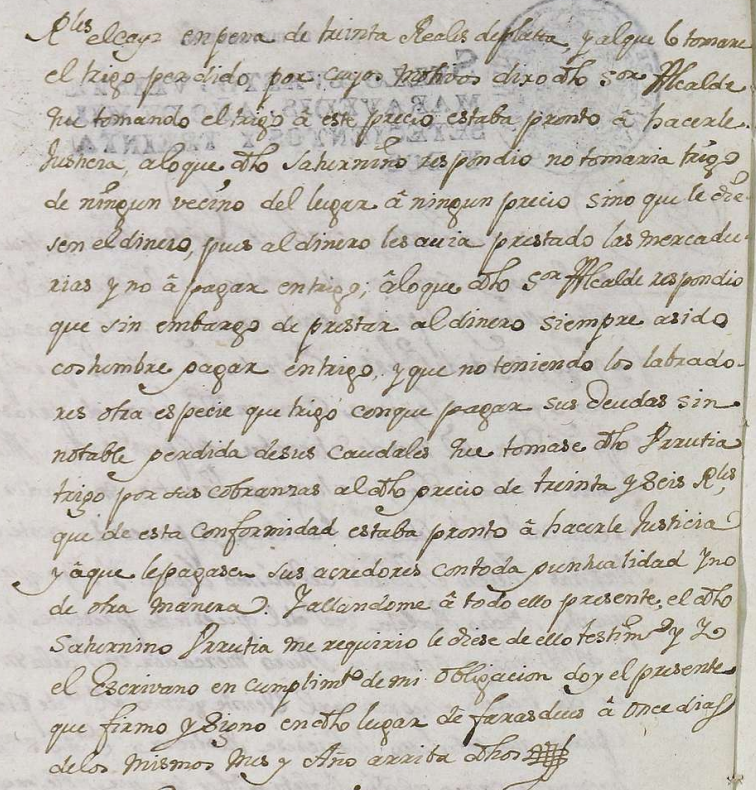 Rˡᵉˢ el cayz en pena de treinta Reales de platta, y al que lo tomare
el trigo perdido por cuyos motivos dixo dho Sᵒʳ Alcalde
que tomando el trigo â este precio estaba pronto â hacerle
Justicia, alo que dho Saturnino respondio no tomaria trigo
de ningun vecino del lugar â ningun precio sino que le die-
sen el dinero, pues al dinero les avia prestado las mercadu-
rias y no â pagar en trigo; âlo que dho Sᵒʳ Alcalde respondio
que sin embargo de prestar al dinero siempre asido
costumbre pagar en trigo, y que no teniendo los labrado-
res otra especie que trigo conque pagar sus deudas sin
notable perdida desus caudales que tomase dho Yrrutia
trigo por sus cobranzas al dho precio de treinta y seis Rˡᵉˢ,
que de esta Conformidad estaba pronto â hacerle Justicia
y âque le pagasen sus acredores contoda puntualidad y no
de otra manera. Yallandome â todo ello presente, el dho
Saturnino Yrrutia me requirio le diese de ello testimº y Yo
el Escrivano en cumplimᵗº de mi obligacion doy el presente
que firmo y signo en dho lugar de farasdues â once dias
delos mismos mes y Año arriba dhos